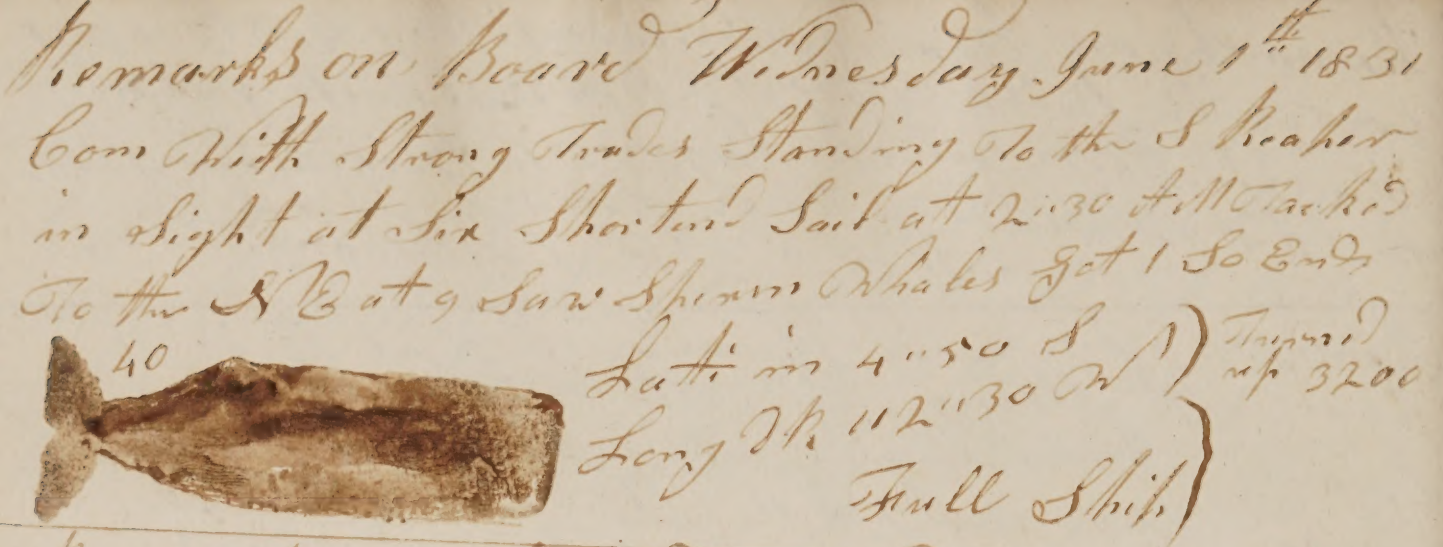 Remarks on Board Wednesday June 1th 1831
Com With Strong Trades Standing To the S
in Sight at Six Shortend Sail at 2"30 AM Tacked
To the N E at 9 Saw Sperm Whales Got 1 So Ends
40
Latt in 4"50 S
Long DR 112"30 W
Turnd
up 3200
Full Ship